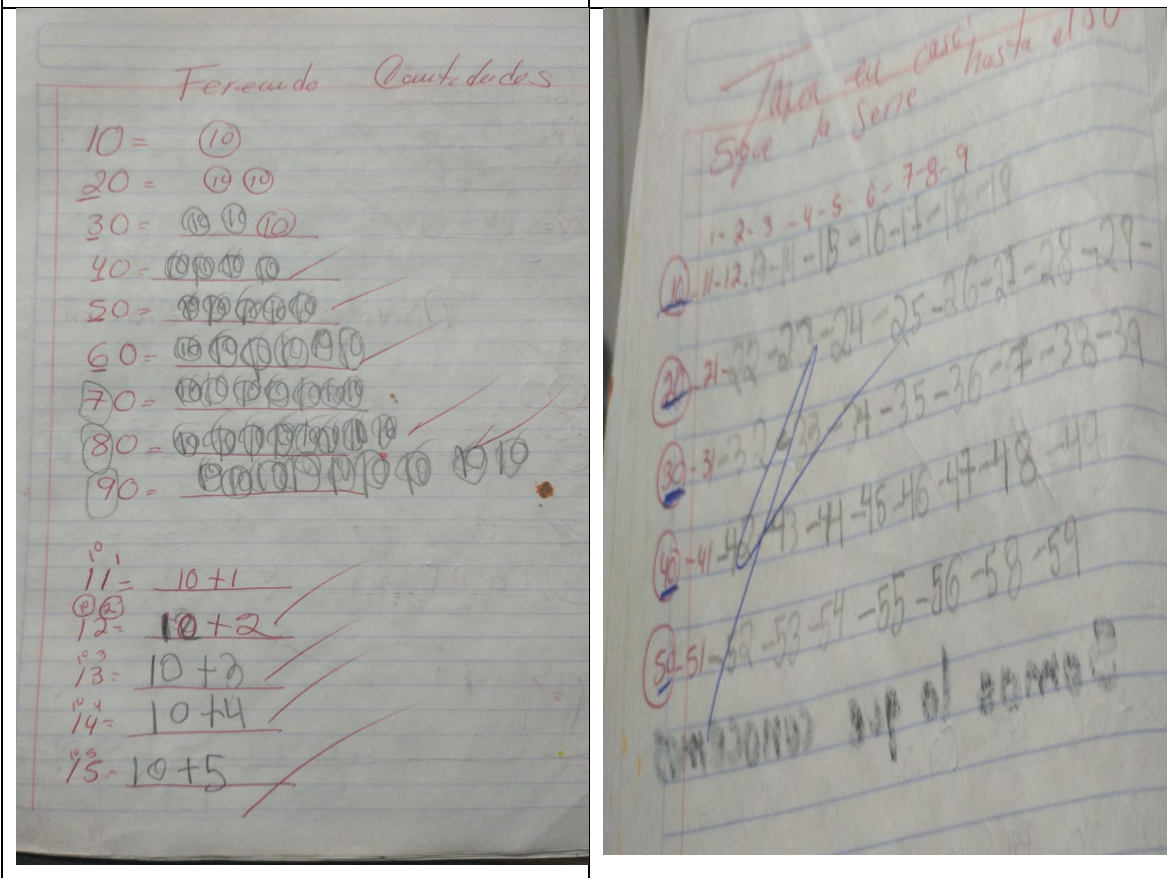 Fereando Cantidades
10 = 10
20 = 10 10
30 = 10 10 10
40 = 10 10 10 10
50 = 10 10 10 10 10
60 = 10 10 10 10 10 10
70 = 10 10 10 10 10 10 10
80 = 10 10 10 10 10 10 10 10
90 = 10 10 10 10 10 10 10 10 10
10 1
11 = 10 + 1
10 2
12 = 10 + 2
10 3
13 = 10 + 3
10 4
14 = 10 + 4
10 5
15 = 10 + 5
Tarea en casa
Sigue la serie hasta el 50
1 - 2 - 3 - 4 - 5 - 6 - 7 - 8 - 9
10 - 11 - 12 - 13 - 14 - 15 - 16 - 17 - 18 - 19
20 - 21 - 22 - 23 - 24 - 25 - 26 - 27 - 28 - 29 -
30 - 31 - 32 - 33 - 34 - 35 - 36 - 37 - 38 - 39
40 - 41 - 42 - 43 - 44 - 45 - 46 - 47 - 48 - 49
50 - 51 - 52 - 53 - 54 - 55 - 56 - 58 - 59